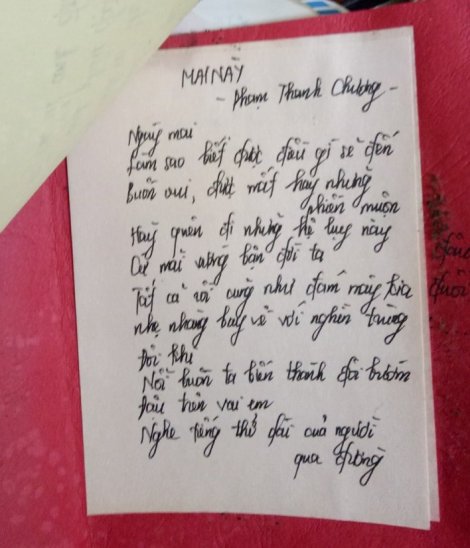 MAI NÀY
- Phạm Thanh Chương -
Ngày mai
Làm sao biết được điều gì sẽ đến
Buồn vui, được mất hay những
phiền muộn
Hãy quên đi những hệ lụy này
Cứ mãi vướng bận đời ta
Tất cả rồi cũng như đám mây kia
nhẹ nhàng bay về với nghìn trùng
Đôi khi
Nỗi buồn ta biến thành đôi bướm
Đậu trên vai em
Nghe tiếng thở dài của người
qua đường